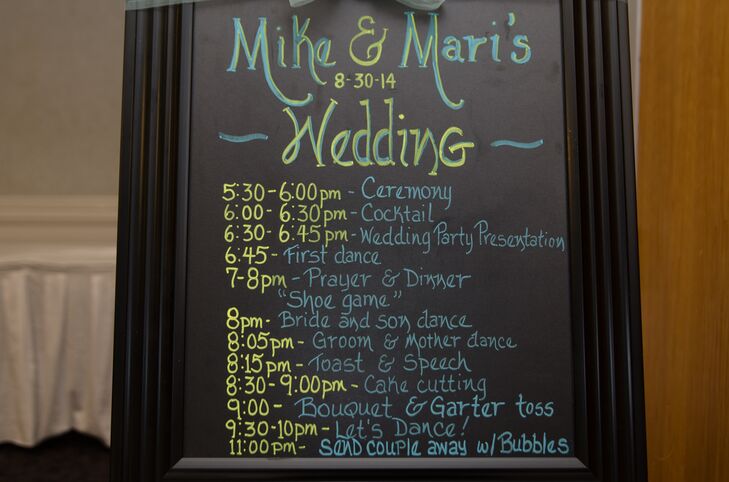 Mike & Mari's
8-30-14
~ Wedding ~
5:30-6:00pm - Ceremony
6:00-6:30pm - Cocktail
6:30-6:45pm - Wedding Party Presentation
6:45- First dance
7-8pm - Prayer & Dinner
"Shoe game"
8pm- Bride and son dance
8:05pm- Groom & Mother dance
8:15pm- Toast & Speech
8:30-9:00pm - Cake cutting
9:00- Bouquet & Garter toss
9:30-10pm- Let's Dance!
11:00pm- Send couple away w/ Bubbles